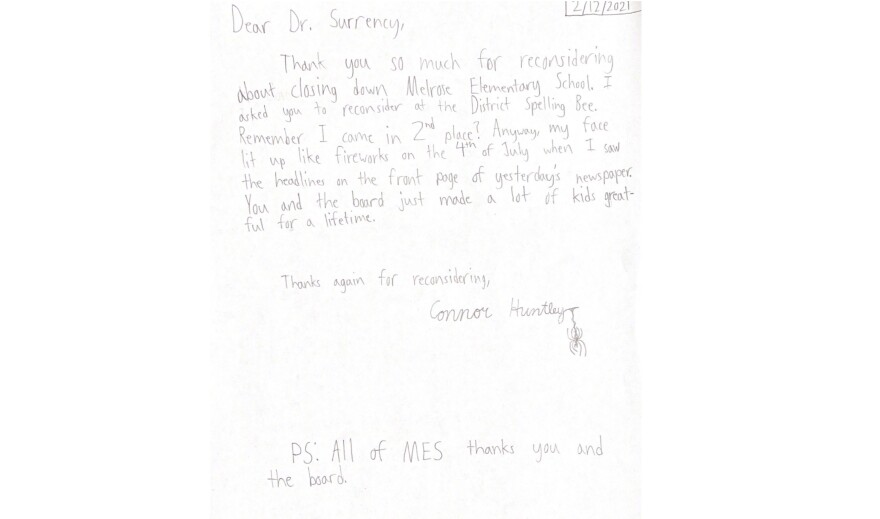 2/12/2021
Dear Dr. Surrency,
Thank you so much for reconsidering
about closing down Melrose Elementary School. I
asked you to reconsider at the District Spelling Bee.
Remember I came in 2nd place? Anyway, my face
lit up like fireworks on the 4th of July when I saw
the headlines on the front page of yesterday's newspaper.
You and the board just made a lot of kids great-
ful for a lifetime.
Thanks again for reconsidering,
Connor Huntley
PS: All of MES thanks you and
the board.